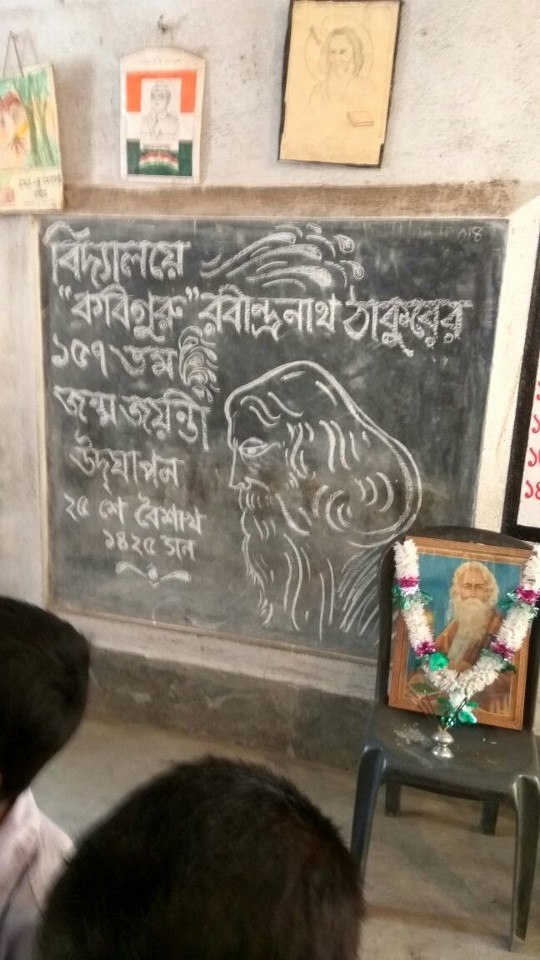 বিদ্যালয়ে
"কবিগুরু" রবীন্দ্রনাথ ঠাকুরের
১৫৭ তম
জন্ম জয়ন্তী
উদ্‌যাপন
২৫ শে বৈশাখ
১৪২৫ সন